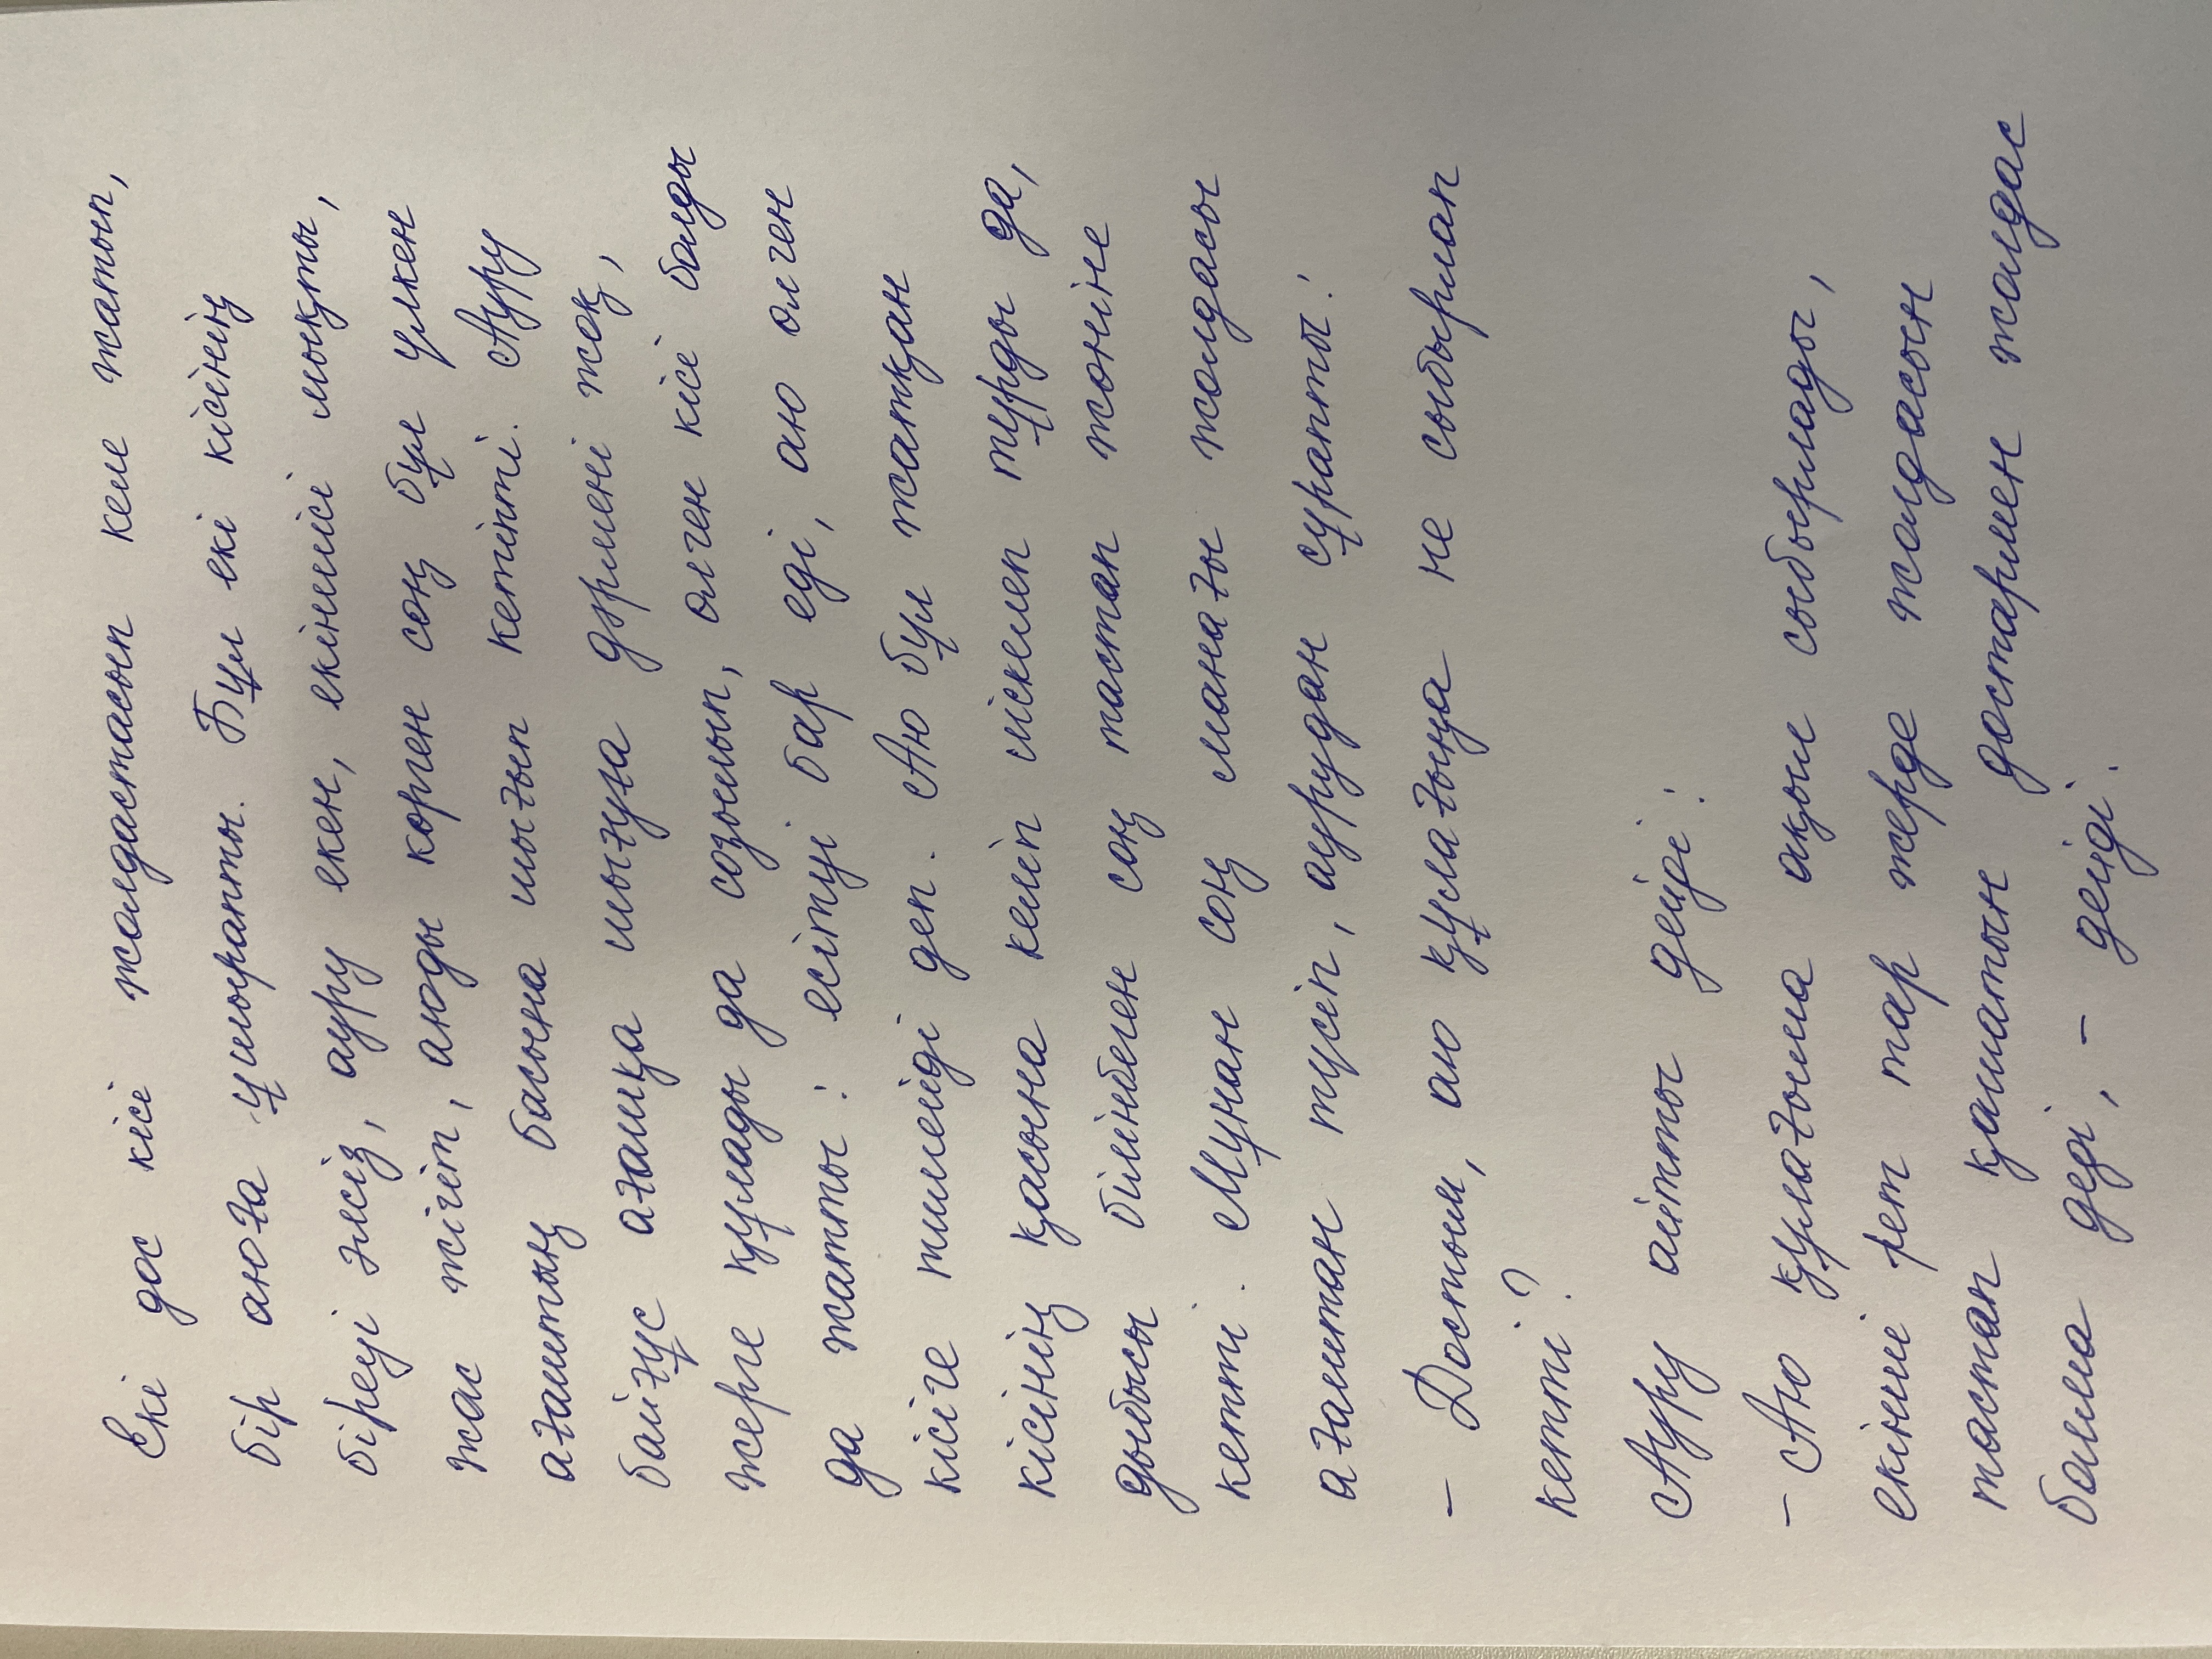 Екі дос кісі жолдастасып келе жатып,
бір аюға ұшырапты. Бұл екі кісінің
біреуі әлсіз, ауру екен, екіншісі мықты,
жас жігіт, аюды көрген соң бұл үлкен
ағаштың басына шығып кетіпті. Ауру
байғұс ағашқа шығуға дәрмені жоқ,
жерге құлады да созылып, өлген кісі болды
да жатты: есітуі бар еді, аю өлген
кісіге тимейді деп. Аю бұл жатқан
кісінің қасына келіп иіскелеп тұрды да,
дыбысы білінбеген соң тастап жөніне
кетті. Мұнан соң манағы жолдасы
ағаштан түсіп, аурудан сұрапты:
- Достым, аю құлағыңа не сыбырлап
кетті?
Ауру айтты дейді:
- Аю құлағыма ақыл сыбырлады,
екінші рет тар жерде жолдасын
тастап қашатын достармен жолдас
болма деді, - дейді.